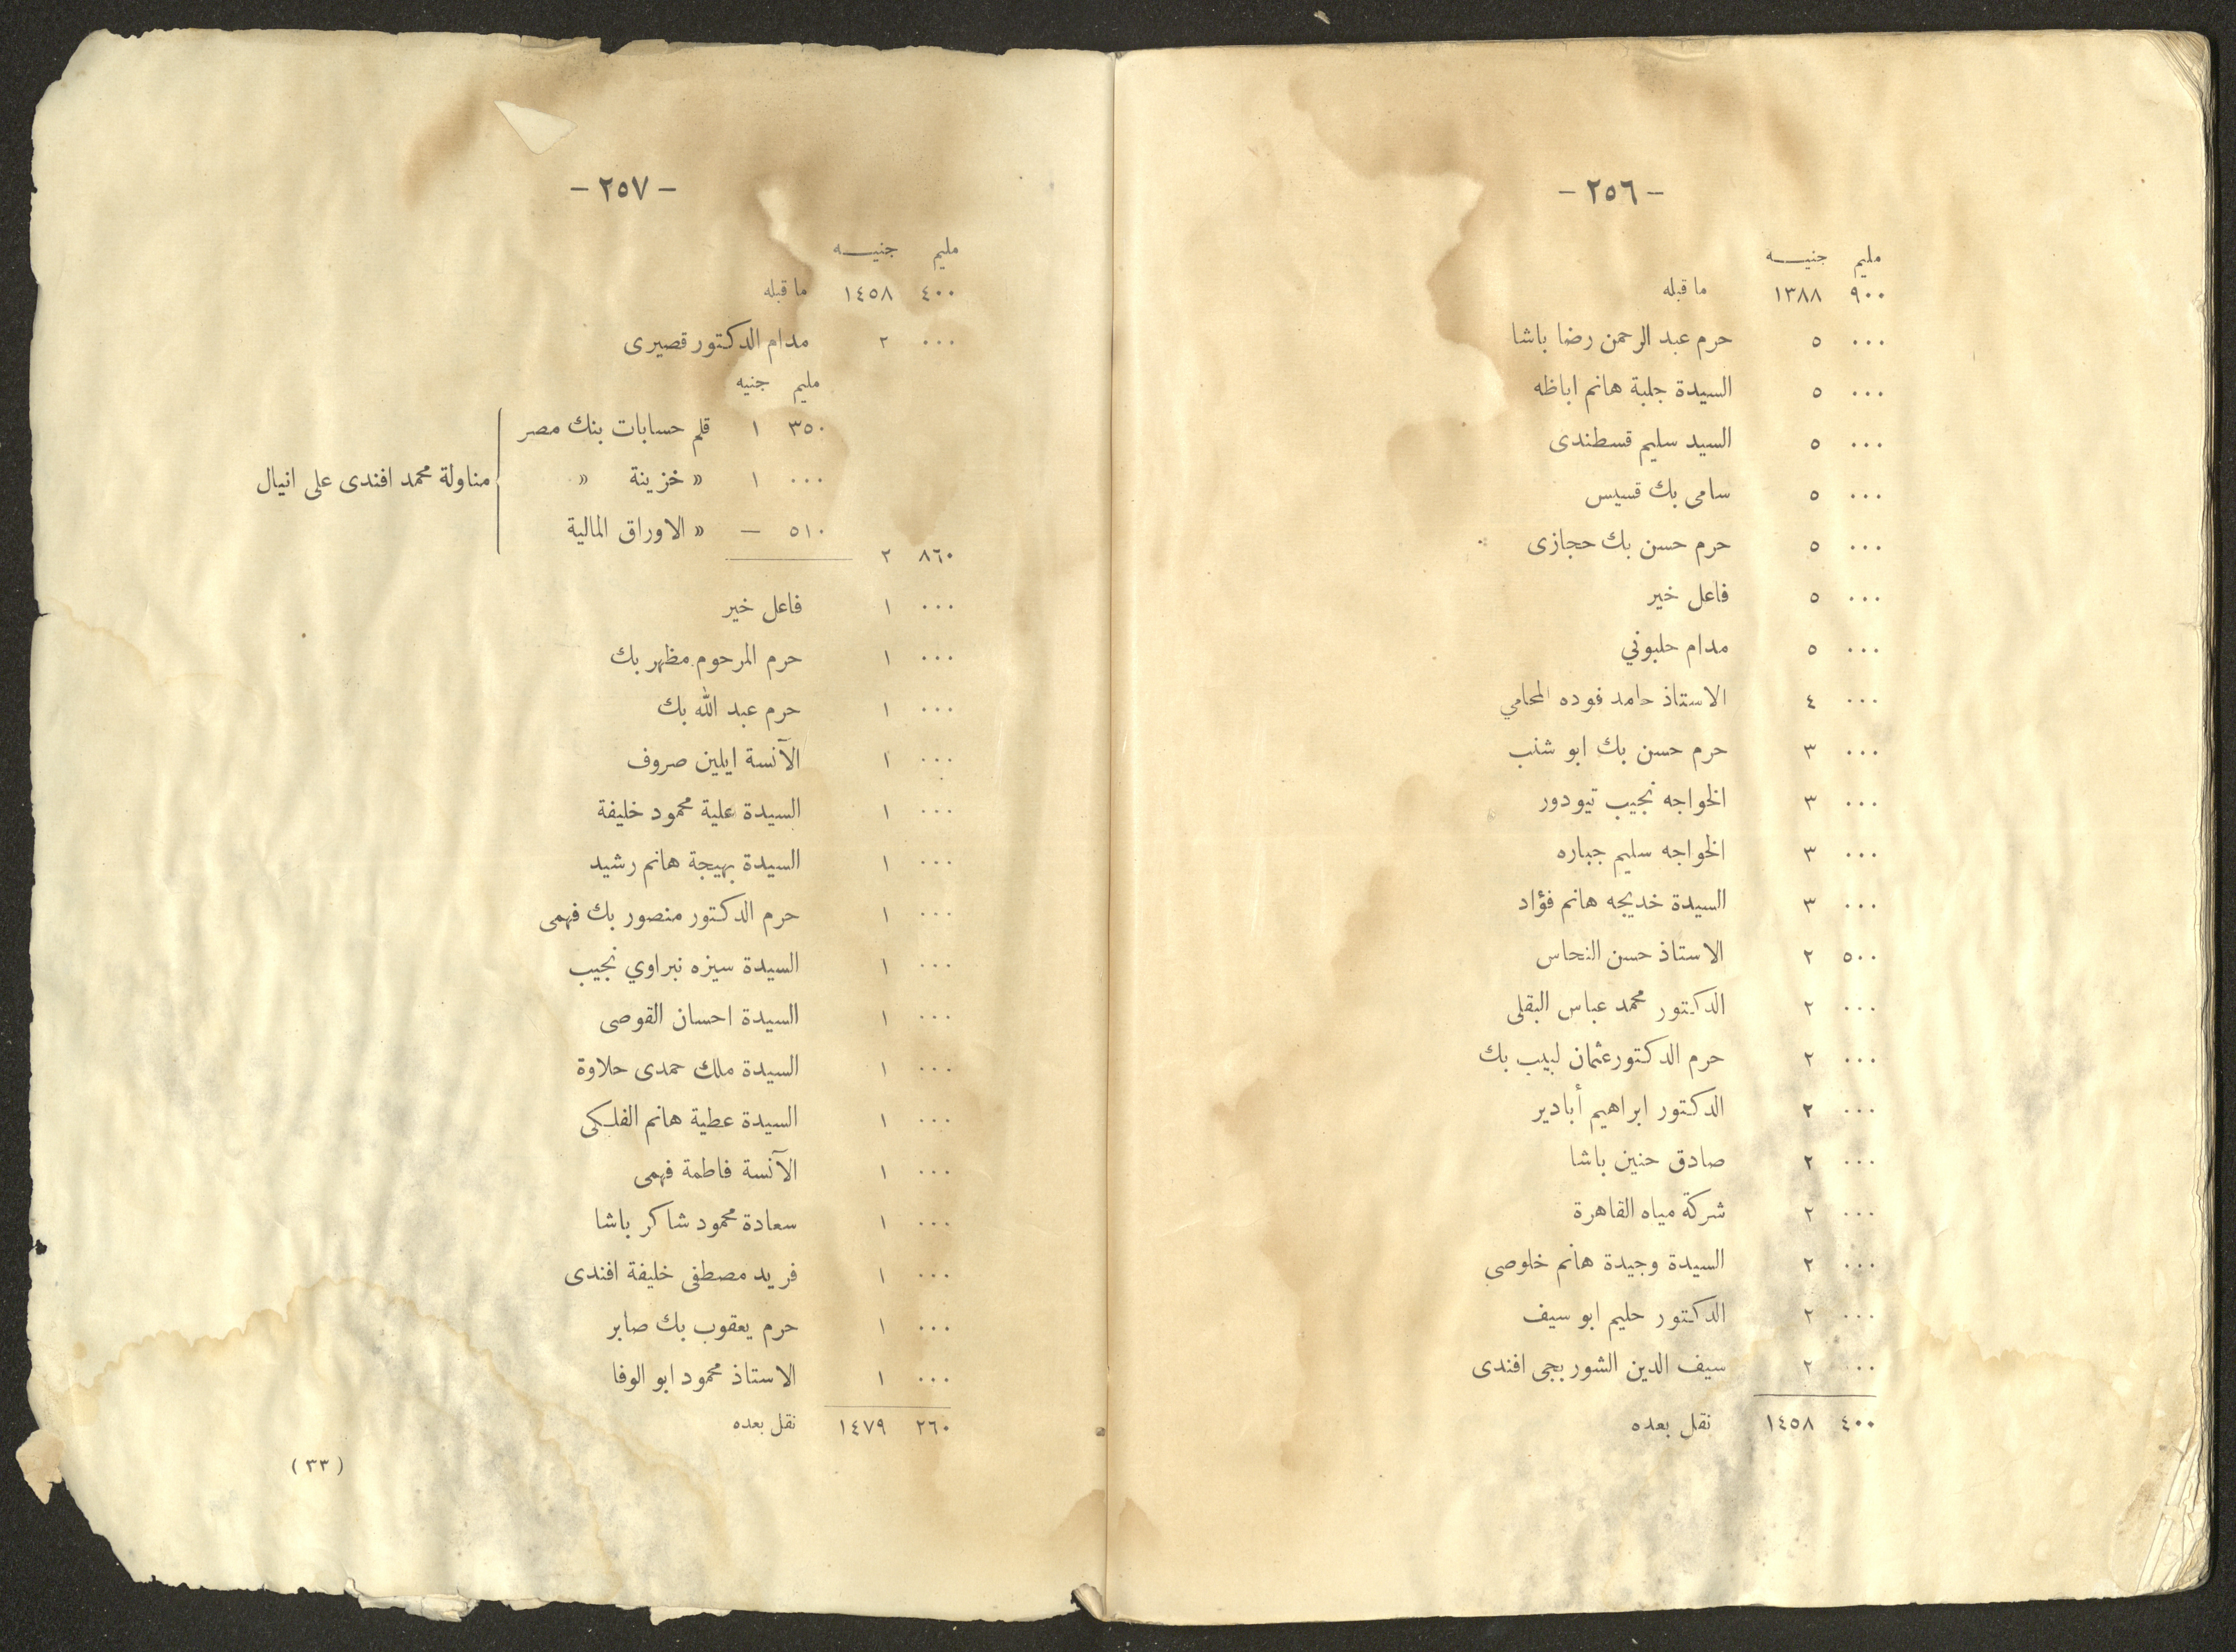 - ٢٥٦ -
مليم جنيه
٩٠٠ ١٣٨٨ ما قبله
٠٠٠ ٥ حرم عبد الرحمن رضا باشا
٠٠٠ ٥ السيدة جلبة هانم اباظه
٠٠٠ ٥ السيد سليم قسطندى
٠٠٠ ٥ سامى بك قسيس
٠٠٠ ٥ حرم حسن بك حجازى
٠٠٠ ٥ فاعل خير
٠٠٠ ٥ مدام حلبوني
٠٠٠ ٤ الاستاذ حامد فوده المحامي
٠٠٠ ٣ حرم حسن بك ابو شنب
٠٠٠ ٣ الخواجه نجيب تيودور
٠٠٠ ٣ الخواجه سليم جباره
٠٠٠ ٣ السيدة خديجه هانم فؤاد
٥٠٠ ٢ الاستاذ حسن النحاس
٠٠٠ ٢ الدكتور محمد عباس البقلى
٠٠٠ ٢ حرم الدكتور عثمان لبيب بك
٠٠٠ ٢ الدكتور ابراهيم أبادير
٠٠٠ ٢ صادق حنين باشا
٠٠٠ ٢ شركة مياه القاهرة
٠٠٠ ٢ السيدة وجيدة هانم خلوصى
٠٠٠ ٢ الدكتور حليم ابو سيف
٠٠٠ ٢ سيف الدين الشوربجى افندى
٤٠٠ ١٤٥٨ نقل بعده
- ٢٥٧ -
مليم جنيه
٤٠٠ ١٤٥٨ ما قبله
٠٠٠ ٢ مدام الدكتور قصيرى
مليم جنيه
٣٥٠ ١ قلم حسابات بنك مصر
٠٠٠ ١ « خزينة « مناولة محمد افندى على انيال
٥١٠ — « الاوراق المالية
٨٦٠ ٢
٠٠٠ ١ فاعل خير
٠٠٠ ١ حرم المرحوم مظهر بك
٠٠٠ ١ حرم عبد الله بك
٠٠٠ ١ الآنسة ايلين صروف
٠٠٠ ١ السيدة علية محمود خليفة
٠٠٠ ١ السيدة بهيجة هانم رشيد
٠٠٠ ١ حرم الدكتور منصور بك فهمى
٠٠٠ ١ السيدة سيزه نبراوي نجيب
٠٠٠ ١ السيدة احسان القوصى
٠٠٠ ١ السيدة ملك حمدى حلاوة
٠٠٠ ١ السيدة عطية هانم الفلكى
٠٠٠ ١ الآنسة فاطمة فهمى
٠٠٠ ١ سعادة محمود شاكر باشا
٠٠٠ ١ فريد مصطفى خليفة افندى
٠٠٠ ١ حرم يعقوب بك صابر
٠٠٠ ١ الاستاذ محمود ابو الوفا
٢٦٠ ١٤٧٩ نقل بعده
(٣٣)